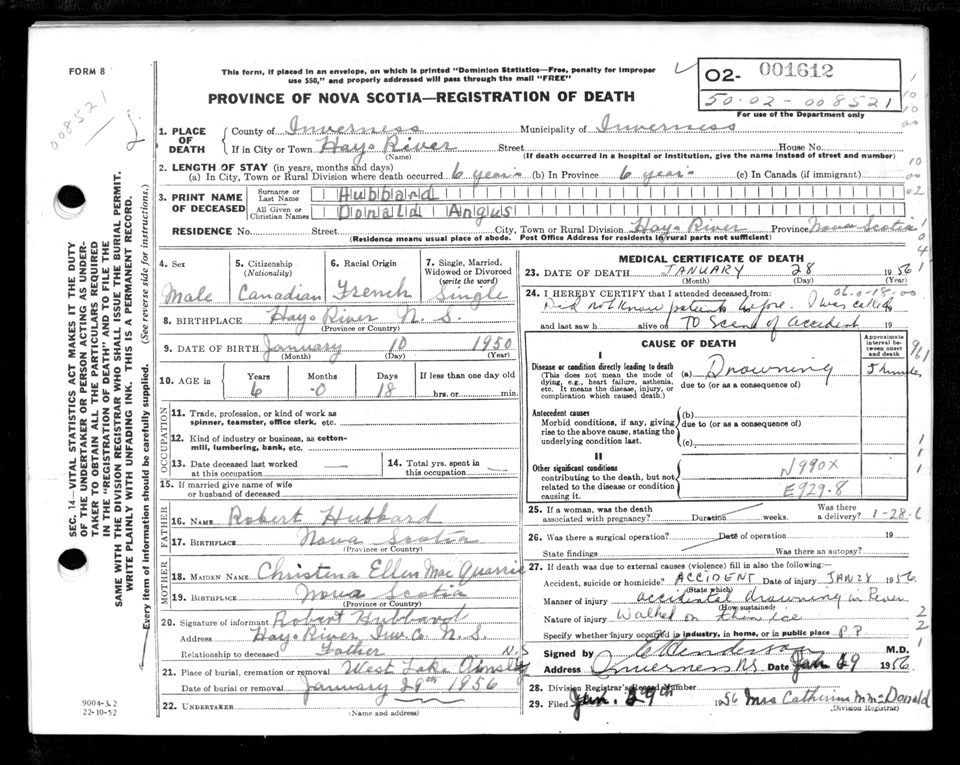 FORM 8
This form, if placed in an envelope, on which is printed "Dominion Statistics—Free, penalty for improper use $50," and properly addressed will pass through the mail "FREE"
O2- 001612
50-02-008521
For use of the Department only
008521
PROVINCE OF NOVA SCOTIA—REGISTRATION OF DEATH
SEC. 14—VITAL STATISTICS ACT MAKES IT THE DUTY OF THE UNDERTAKER OR PERSON ACTING AS UNDERTAKER TO OBTAIN ALL THE PARTICULARS REQUIRED IN THE "REGISTRATION OF DEATH" AND TO FILE THE SAME WITH THE DIVISION REGISTRAR WHO SHALL ISSUE THE BURIAL PERMIT.
WRITE PLAINLY WITH UNFADING INK. THIS IS A PERMANENT RECORD.
Every item of information should be carefully supplied. (See reverse side for instructions.)
1. PLACE OF DEATH County of Inverness Municipality of Inverness
If in City or Town Hays River (Name) Street House No.
(If death occurred in a hospital or institution, give the name instead of street and number)
2. LENGTH OF STAY (in years, months and days)
(a) In City, Town or Rural Division where death occurred 6 years (b) In Province 6 years (c) In Canada (if immigrant)
3. PRINT NAME OF DECEASED Surname or Last Name Hubbard
All Given or Christian Names Donald Angus
RESIDENCE No. Street City, Town or Rural Division Hays River Province Nova Scotia
(Residence means usual place of abode. Post Office Address for residents in rural parts not sufficient)
4. Sex Male
5. Citizenship (Nationality) Canadian
6. Racial Origin French
7. Single, Married, Widowed or Divorced (write the word) Single
8. BIRTHPLACE Hays River N. S.
(Province or Country)
9. DATE OF BIRTH January 10 1950
(Month) (Day) (Year)
10. AGE in Years 6 Months -0 Days 18 If less than one day old hrs. or min.
OCCUPATION
11. Trade, profession, or kind of work as spinner, teamster, office clerk, etc.
12. Kind of industry or business, as cotton-mill, lumbering, bank, etc.
13. Date deceased last worked at this occupation —
14. Total yrs. spent in this occupation —
15. If married give name of wife or husband of deceased
FATHER
16. NAME Robert Hubbard
17. BIRTHPLACE Nova Scotia
(Province or Country)
MOTHER
18. MAIDEN NAME Christena Ellen Mac Quarrie
19. BIRTHPLACE Nova Scotia
(Province or Country)
20. Signature of informant Robert Hubbard
Address Hays River Inv. Co. N. S.
Relationship to deceased Father
21. Place of burial, cremation or removal West Lake Ainslie N.S
Date of burial or removal January 29th 1956
22. UNDERTAKER
(Name and address)
9004-3.2
22-10-52
MEDICAL CERTIFICATE OF DEATH
23. DATE OF DEATH JANUARY 28 1956
(Month) (Day) (Year)
24. I HEREBY CERTIFY that I attended deceased from: 06-0-18-00
Did not know patient before. I was called
and last saw h alive on To Scene of accident 19
CAUSE OF DEATH
Approximate interval between onset and death
I
Disease or condition directly leading to death
(This does not mean the mode of dying, e.g., heart failure, asthenia, etc. It means the disease, injury, or complication which caused death.)
(a) Drowning
due to (or as a consequence of)
Antecedent causes
Morbid conditions, if any, giving rise to the above cause, stating the underlying condition last.
(b)
due to (or as a consequence of)
(c)
II
Other significant conditions
contributing to the death, but not related to the disease or condition causing it.
N990X
E929.8
25. If a woman, was the death associated with pregnancy? Duration weeks. Was there a delivery? 1-28-6
26. Was there a surgical operation? Date of operation 19
State findings Was there an autopsy?
27. If death was due to external causes (violence) fill in also the following:
Accident, suicide or homicide? ACCIDENT Date of injury JAN 28 1956
(State which)
Manner of injury accidental drowning in River
(How sustained)
Nature of injury Walked on thin ice
Specify whether injury occurred in industry, in home, or in public place P P
Signed by C Henderson M.D.
Address Inverness NS Date Jan 29 1956
28. Division Registrar's Record Number
29. Filed Jan. 29th 1956 Mrs Catherine M MacDonald
(Division Registrar)